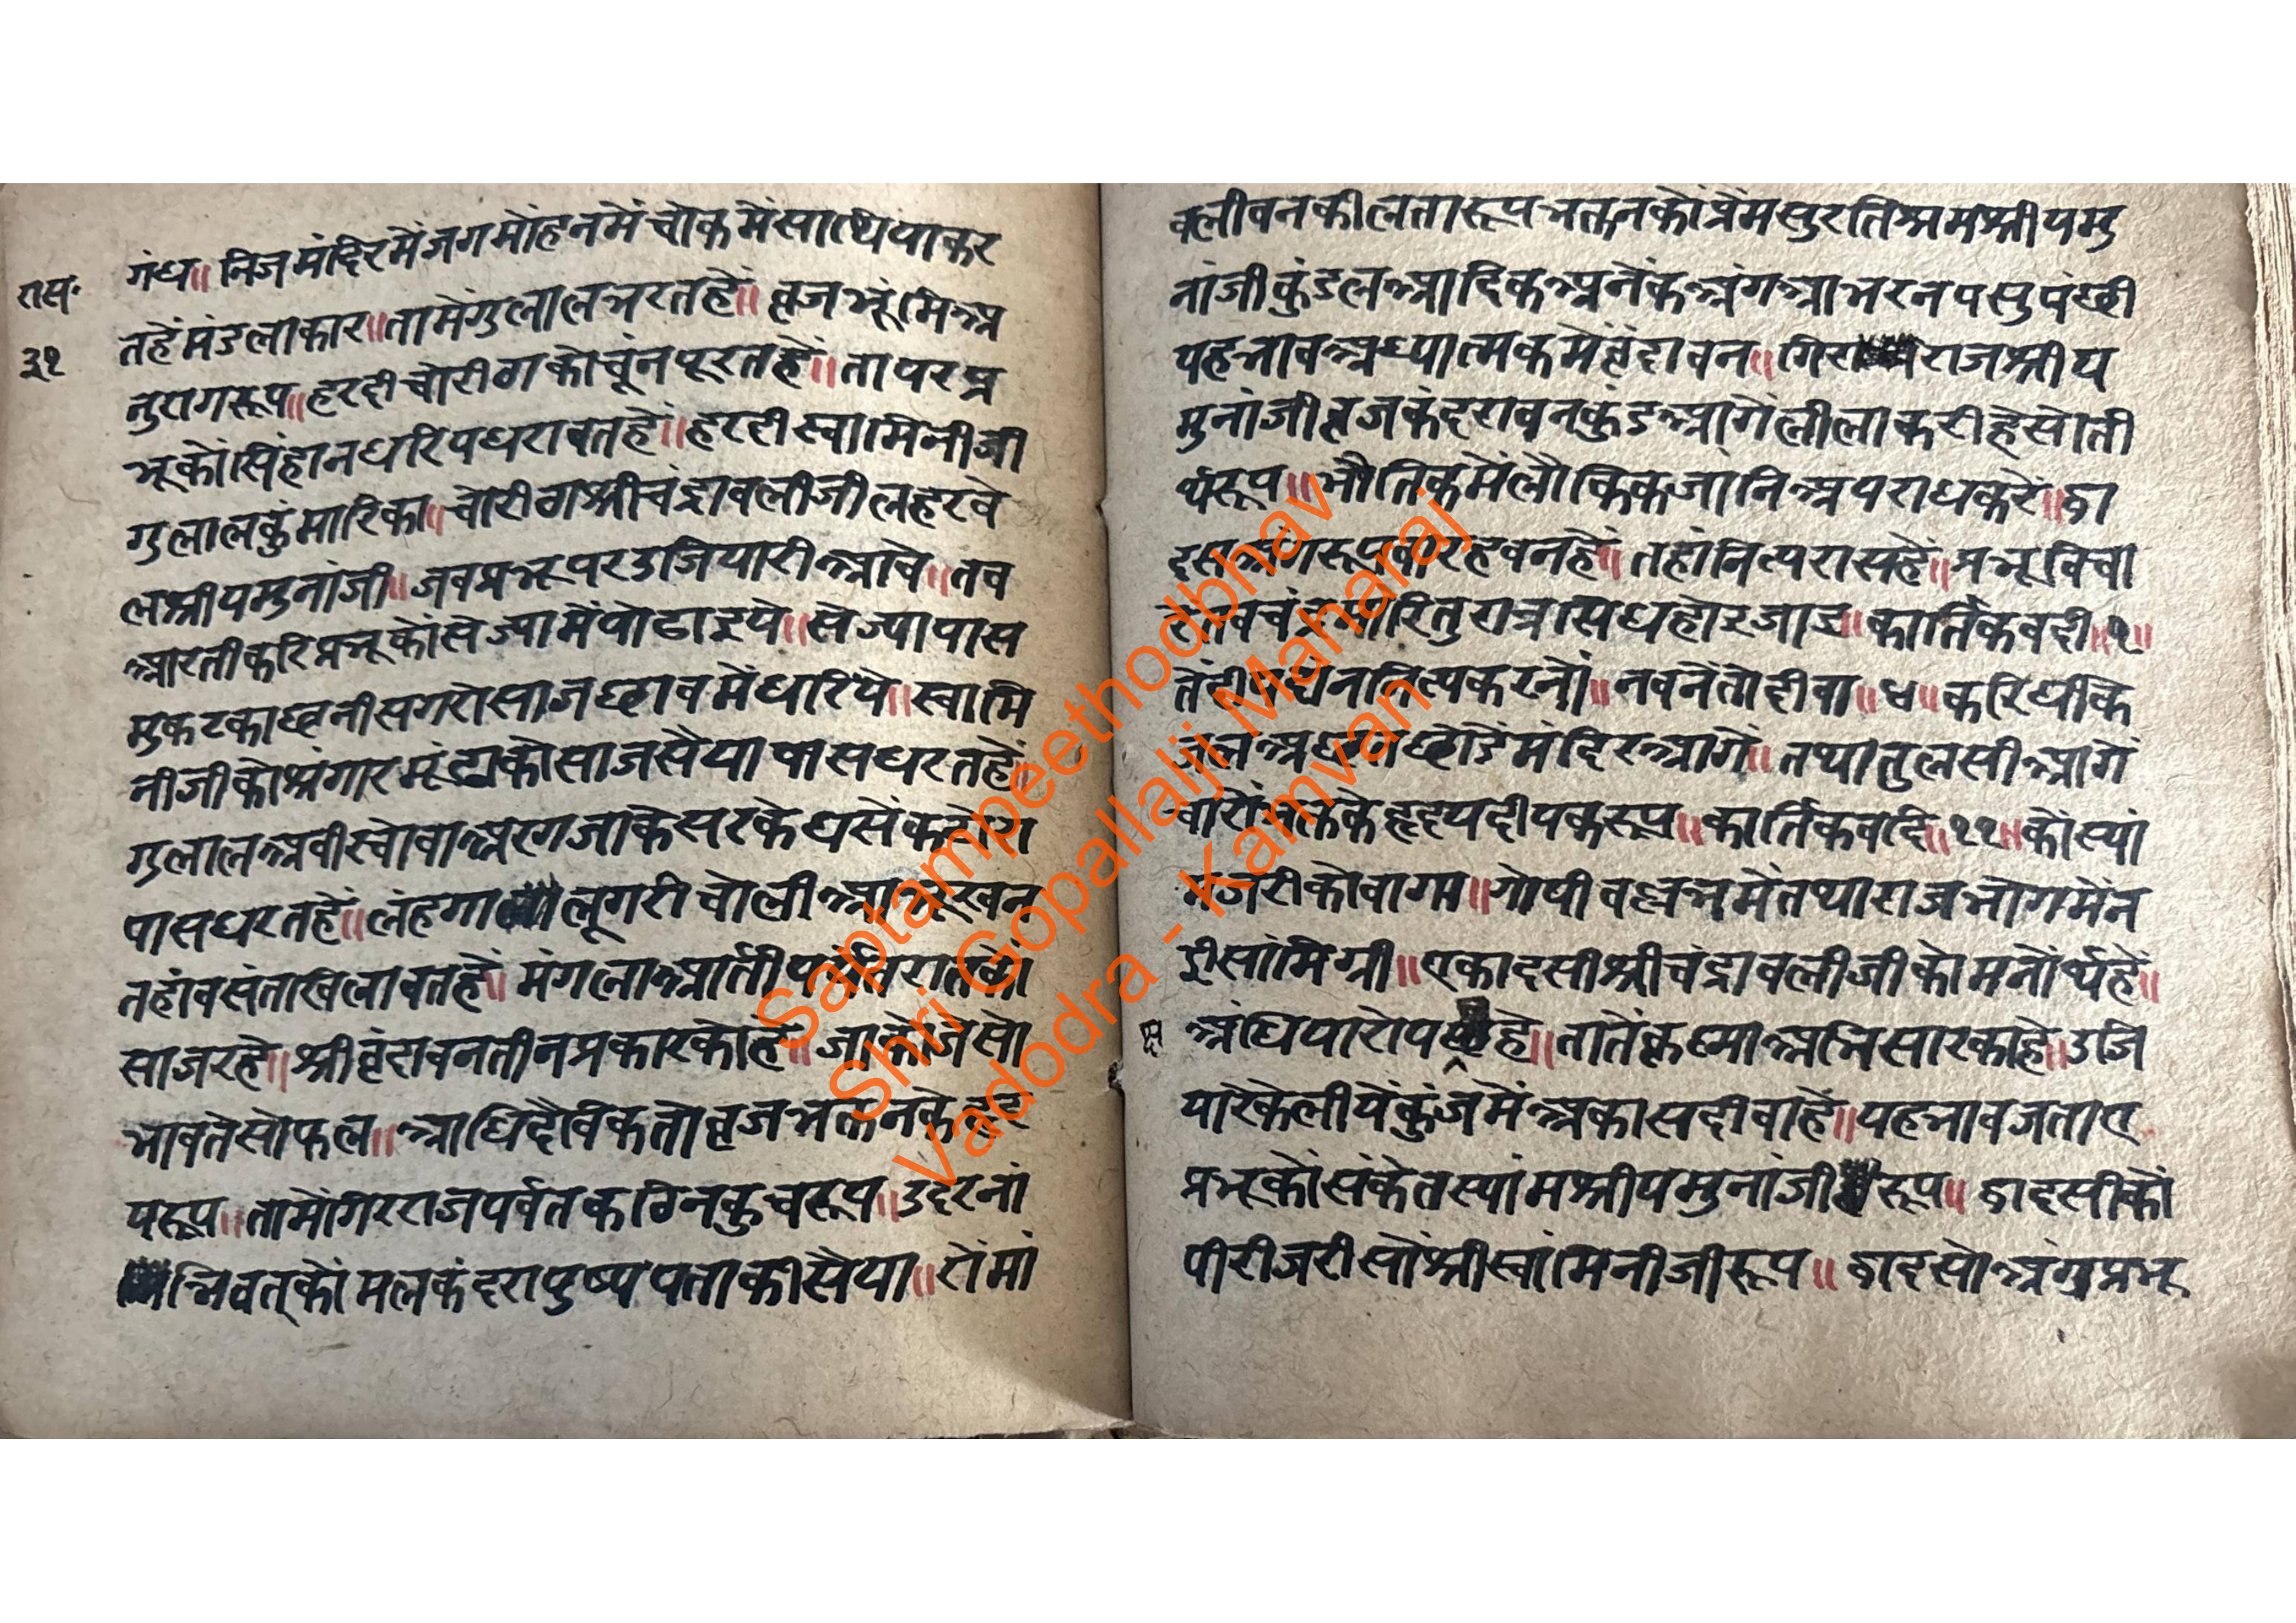 रास॰
३१
गंध॥ निजमंदिरमेंजगमोंहनमेंचोकमेंसाथियाकर
तहेंमंडलाकार॥तामेंगुलालभरतहें॥व्रजभूंमिअ
नुरागरूप॥हरदीचोरीठाकोचूंनपूरतहें॥तापरप्र
भूकोंसिंहानधरिपधरावतहें॥हरदीस्वामिनीजी
गुलालकुंमारिका॥चोरीठाश्रीचंद्रावलीजीलहरवे
लश्रीयमुनांजी॥जबप्रभूपरउजियारीआवे॥तब
आरतीकरिप्रभूकोंसेज्यामेंपोढाइये॥सेज्यापास
मुकटकाछनीसगरोसाजछाबमेंधरिये॥स्वामि
नीजीकोश्रंगारमूंद्राकोसाजसैयापासधरतहें॥
गुलालअबीरचोवाअरगजाकेसरके
पासधरतहें॥लंहगालूगरीचोली
तहांबसंताखिलावतहें॥मंगलाआर्ती
साजरहे॥श्रीवृंदावनतीनप्रकारकोहे॥जाकोजेसो
भावतेसोफल॥आधिदैविकतोव्रजभक्तनके
यरूप॥तामेंगिरराजपर्वतकठिनकुचरूप॥उदरनां
भिवत्कोंमलकंदरापुष्पपताकीसैया॥रोंमां
वलीवनकीलतारूपभक्तनकोप्रेंमसुरतिश्रमश्रीयमु
नांजीकुंडलआदिकअनेंकअंगआभरनपसुपंछी
यहभावअध्यात्मकमेंवृंदावन॥गिराराजश्रीय
मुनांजीव्रजकंदरावनकुंडआगेंलीलाकरीहेसोती
र्थरूप॥भौतिकमेंलौकिकजांनिअपराधकरे॥द्वा
दसअंगरूपबारहवनहें॥तहांनित्यरासहें॥प्रभूबिचा
कार्तिकवदी॥१॥
नित्यकरनों॥नबनेंतोदीवा॥४॥करिधीके
मंदिरआगें॥तथातुलसीआगें
हृदयदीपकरूप॥कार्तिकवदि॥११॥कोंस्यां
मजरीकोवागा॥गोपीवल्लभमेंतथाराजभोगमेंन
ईसांमिग्री॥एकादसीश्रीचंद्रावलीजीकोमनोंर्थहें॥
अंधियारोपहे॥तातेंकृष्णाअभिसारकाहे॥उजि
यारेकेलीयेंकुंजमेंअकासदीवाहें॥यहभावजताए
प्रभूकोंसंकेतस्यांमश्रीयमुनांजीरूप॥द्वादसीकों
पीरीजरीसोंश्रीस्वांमिनीजीरूप॥द्वादसोअंगुप्रभू
Saptampeethodbhav
Shri Gopallalji Maharaj
Vadodra - Kamvan